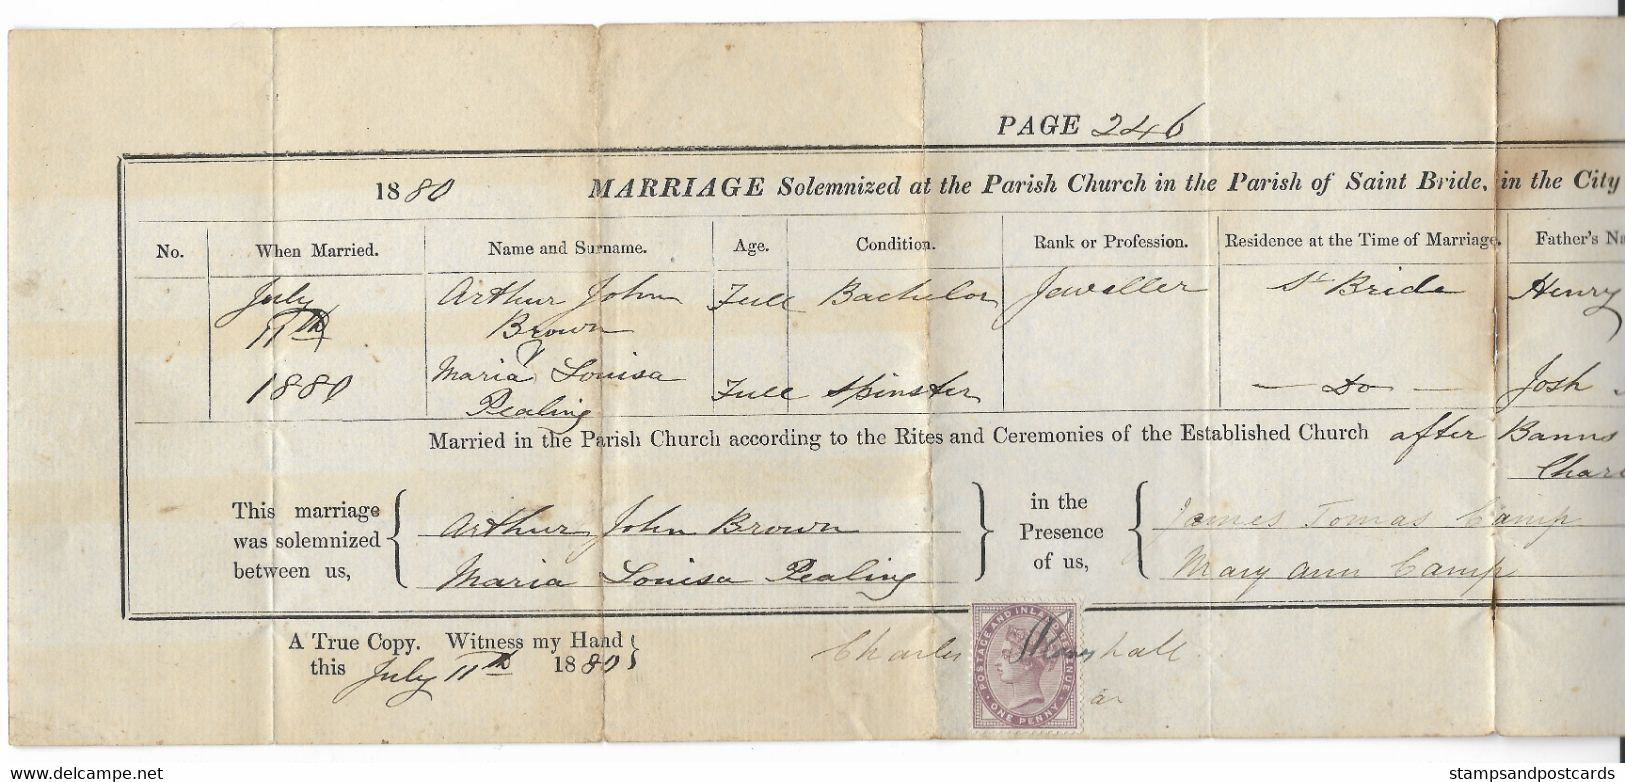 PAGE 246
1880 MARRIAGE Solemnized at the Parish Church in the Parish of Saint Bride, in the City
No. When Married. Name and Surname. Age. Condition. Rank or Profession. Residence at the Time of Marriage. Father's Na
July Arthur John Full Bachelor Jeweller St Bride Henry
11th Brown
1880 Maria Louisa Full Spinster Do Josh
Pealing
Married in the Parish Church according to the Rites and Ceremonies of the Established Church after Banns
Char
This marriage was solemnized between us,
Arthur John Brown
Maria Louisa Pealing
in the Presence of us,
James Tomas Camp
Mary Ann Camp
A True Copy. Witness my Hand
this July 11th 1880
Charles Marshall
POSTAGE AND INLAND REVENUE
ONE PENNY
www.delcampe.net
stampsandpostcards